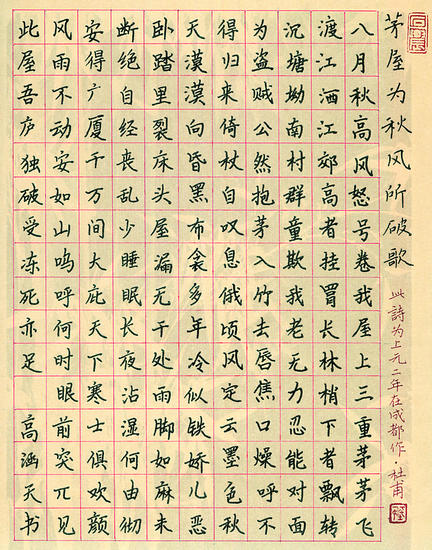 茅屋为秋风所破歌
此詩为上元二年在成都作·杜甫
八月秋高风怒号卷我屋上三重茅茅飞
渡江洒江郊高者挂罥长林梢下者飘转
沉塘坳南村群童欺我老无力忍能对面
为盗贼公然抱茅入竹去唇焦口燥呼不
得归来倚杖自叹息俄顷风定云墨色秋
天漠漠向昏黑布衾多年冷似铁娇儿恶
卧踏里裂床头屋漏无干处雨脚如麻未
断绝自经丧乱少睡眠长夜沾湿何由彻
安得广厦千万间大庇天下寒士俱欢颜
风雨不动安如山呜呼何时眼前突兀见
此屋吾庐独破受冻死亦足 高涵天书